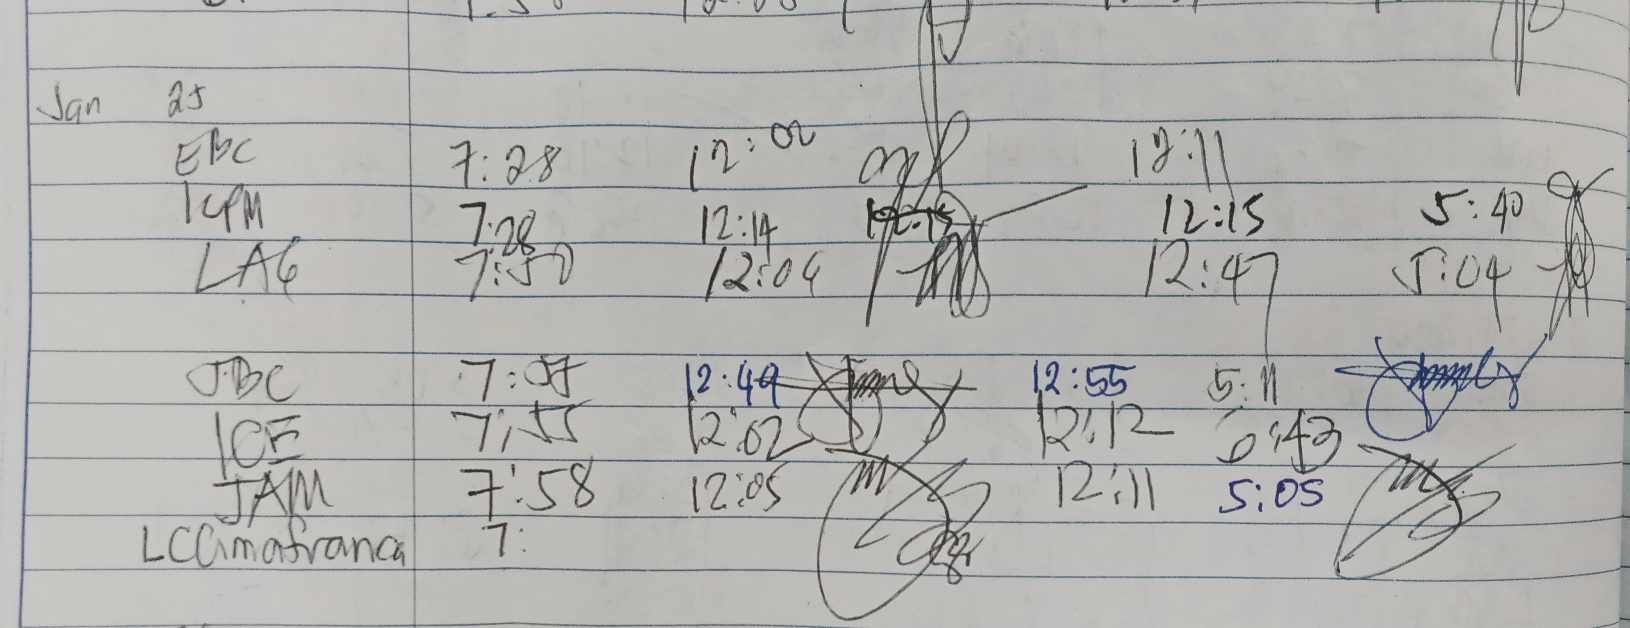 Jan 25
EBC 7:28 12:02 12:11
KPM 7:28 12:14 12:15 12:15 5:40
LAG 7:50 12:04 12:47 5:04
JBC 7:57 12:49 12:55 5:11
ICE 7:55 12:02 12:12
JAM 7:58 12:05 12:11 5:05
LCCimafranca 7: